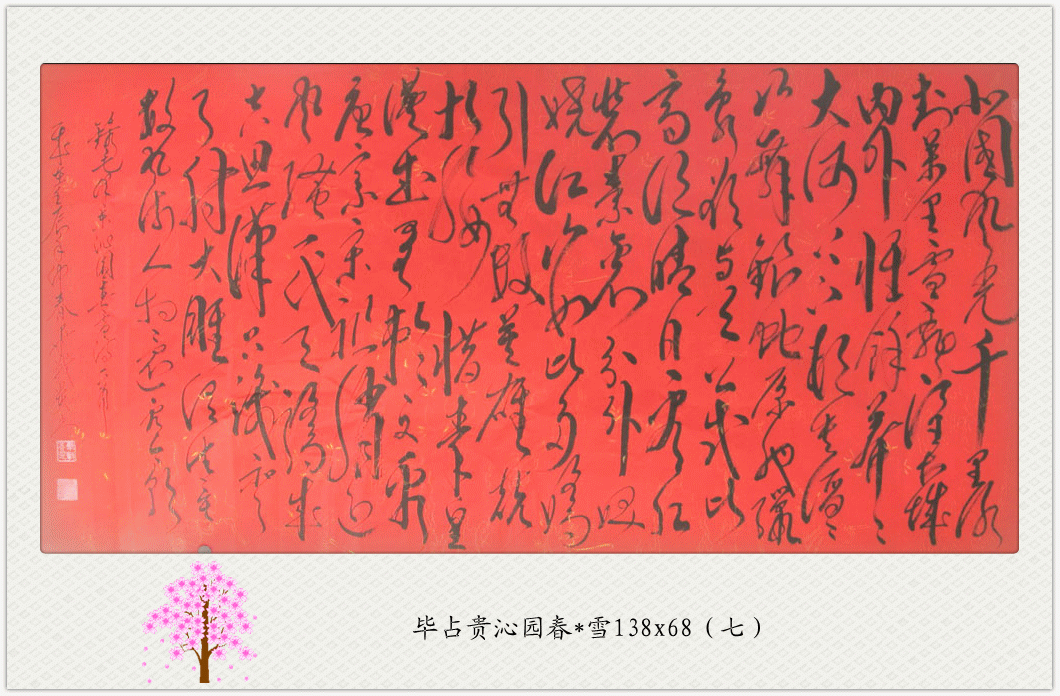 北國风光千里冰
封万里雪飘望长城
内外惟馀莽莽
大河上下顿失滔滔
山舞银蛇原驰蜡
象欲与天公试比
高须晴日看红
装素裹分外妖
娆江山如此多娇
引无数英雄竞
折腰惜秦皇
汉武略输文采
唐宗宋祖稍逊
风骚一代天骄成
吉思汗只识弯
弓射大雕俱往矣
数风流人物还看今朝
沁園春雪
毕占贵沁园春*雪138x68（七）